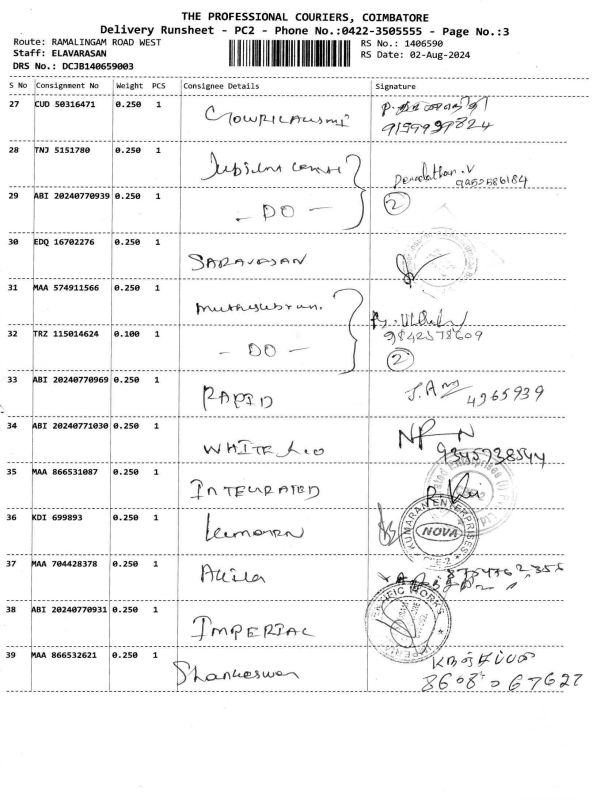 THE PROFESSIONAL COURIERS, COIMBATORE
Delivery Runsheet - PC2 - Phone No.:0422-3505555 - Page No.:3
Route: RAMALINGAM ROAD WEST
RS No.: 1406590
Staff: ELAVARASAN
RS Date: 02-Aug-2024
DRS No.: DCJB140659003
S No Consignment No Weight PCS Consignee Details Signature
27 CUD 50316471 0.250 1
9159939824
28 TNJ 5151780 0.250 1
9952586184
29 ABI 20240770939 0.250 1 - DO - 2
30 EDQ 16702276 0.250 1 SARAVASAN
31 MAA 574911566 0.250 1
32 TRZ 115014624 0.100 1 - DO - 9842578609
2
33 ABI 20240770969 0.250 1 RAPID 4965939
34 ABI 20240771030 0.250 1 WHITE
9345738544
35 MAA 866531087 0.250 1 INTEGRATED
36 KDI 699893 0.250 1 KUMARAN ENTERPRISES NOVA
37 MAA 704428378 0.250 1 Akila
38 ABI 20240770931 0.250 1 IMPERIAL
39 MAA 866532621 0.250 1 Shankeswar